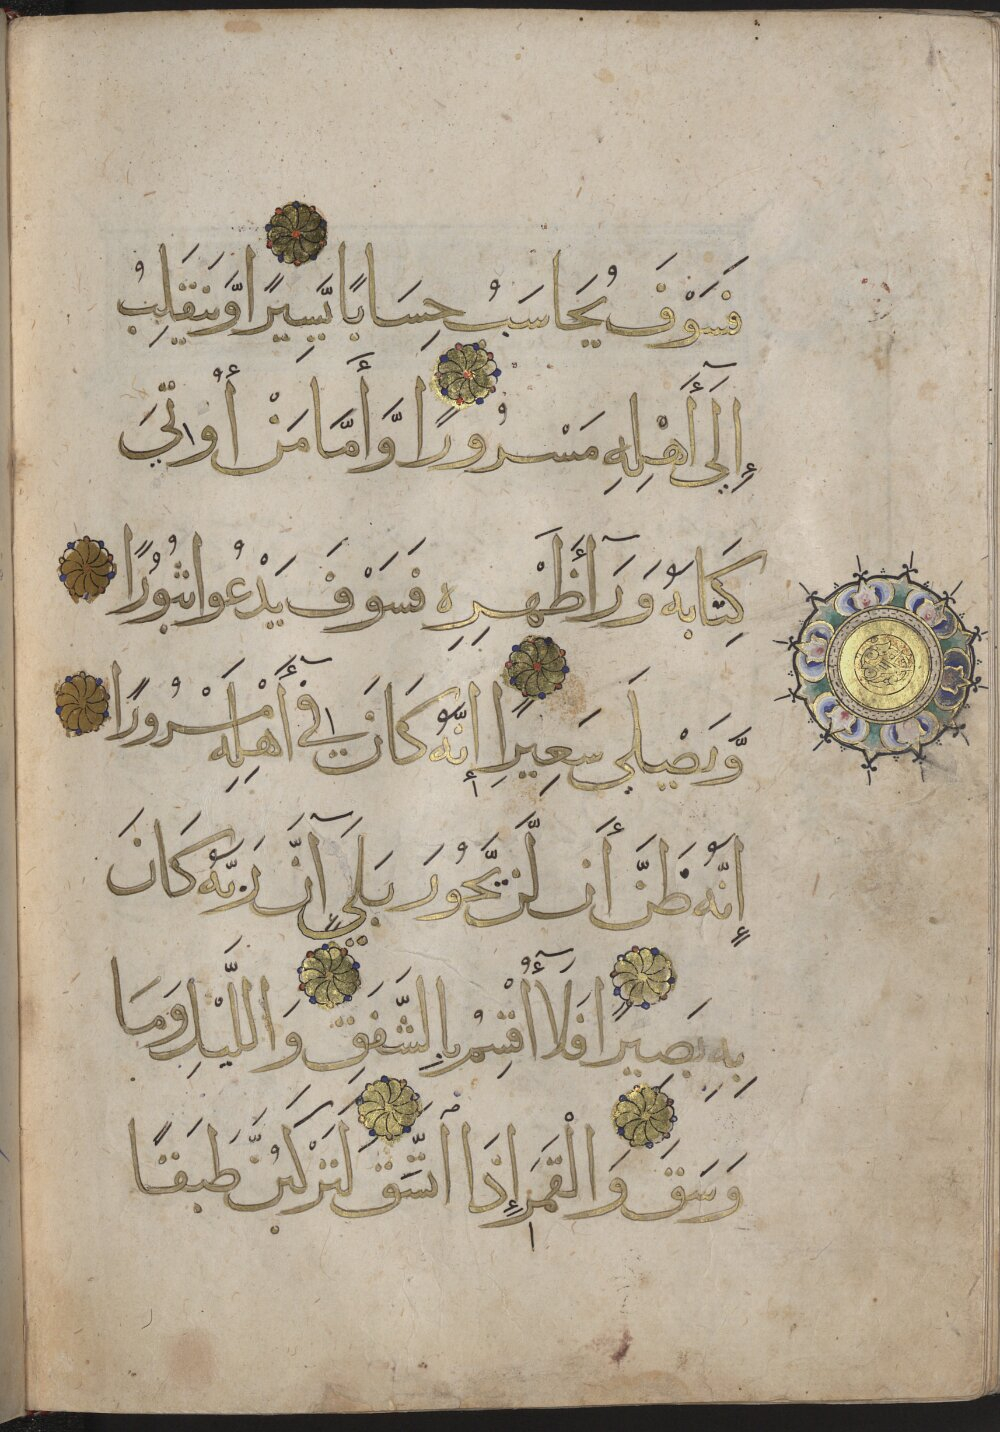 فَسَوْفَ يُحَاسَبُ حِسَابًا يَّسِيرًا وَّيَنقَلِبُ
إِلَىٰٓ أَهْلِهِ مَسْرُورًا وَّأَمَّا مَنْ أُوتِيَ
كِتَابَهُ وَرَآءَ ظَهْرِهِ فَسَوْفَ يَدْعُوا ثُبُورًا
وَّيَصْلَى سَعِيرًا إِنَّهُ كَانَ فِي أَهْلِهِ مَسْرُورًا
إِنَّهُ ظَنَّ أَن لَّن يَّحُورَ بَلَىٰٓ إِنَّ رَبَّهُ كَانَ
بِهِ بَصِيرًا فَلَآ أُقْسِمُ بِالشَّفَقِ وَاللَّيْلِ وَمَا
وَسَقَ وَالْقَمَرِ إِذَا اتَّسَقَ لَتَرْكَبُنَّ طَبَقًا